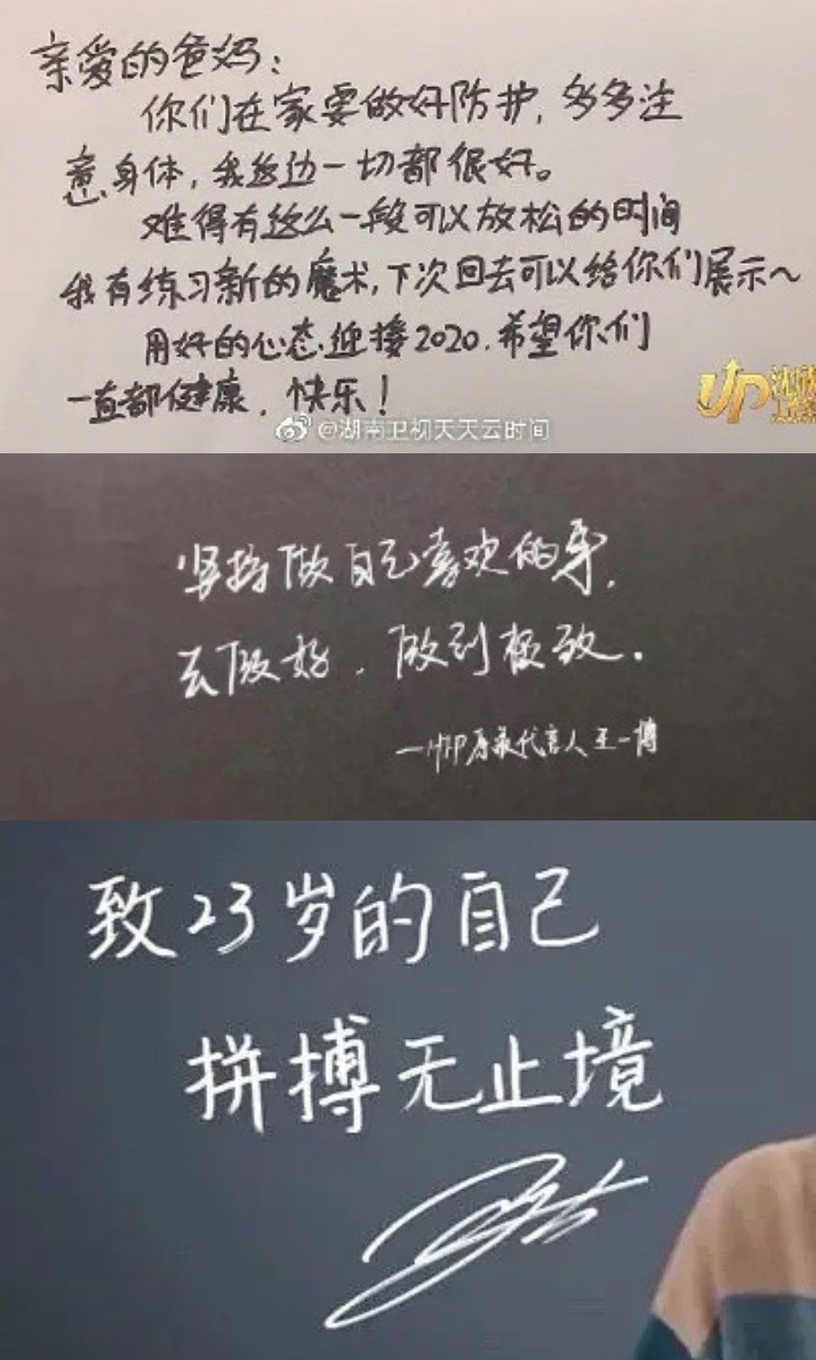 亲爱的爸妈：
你们在家要做好防护，多多注
意身体，我这边一切都很好。
难得有这么一段可以放松的时间
我有练习新的魔术，下次回去可以给你们展示～
用好的心态迎接2020.希望你们
一直都健康，快乐！
UP 湖南卫视
@湖南卫视天天云时间
坚持做自己喜欢的事，
去做好，做到极致.
代言人王一博
致23岁的自己
拼搏无止境